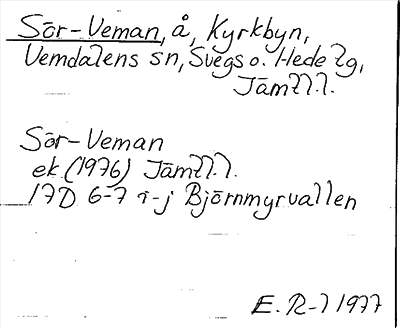 Sör-Veman, å, Kyrkbyn,
Vemdalens sn, Svegs o. Hede lg,
Jämtl.l.
Sör-Veman
ek. (1976) Jämtl.l.
17D 6-7 i-j Björnmyrvallen
E. R-l 1977